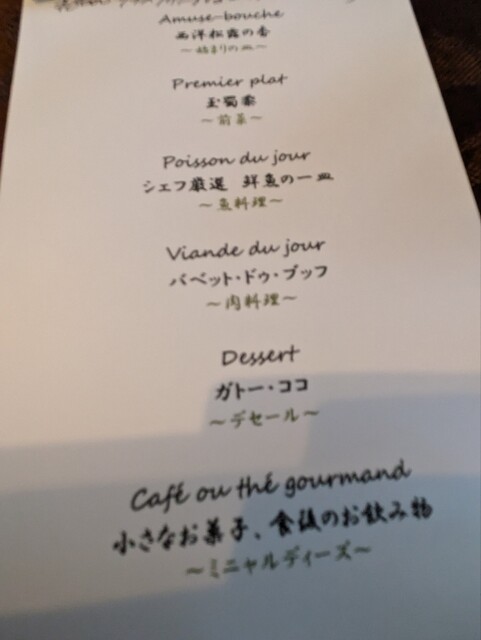 Amuse-bouche
西洋松露の香
～始まりの皿～
Premier plat
玉蜀黍
～前菜～
Poisson du jour
シェフ厳選 鮮魚の一皿
～魚料理～
Viande du jour
バベット・ドゥ・ブッフ
～肉料理～
Dessert
ガトー・ココ
～デセール～
Café ou thé gourmand
小さなお菓子、食後のお飲み物
～ミニャルディーズ～